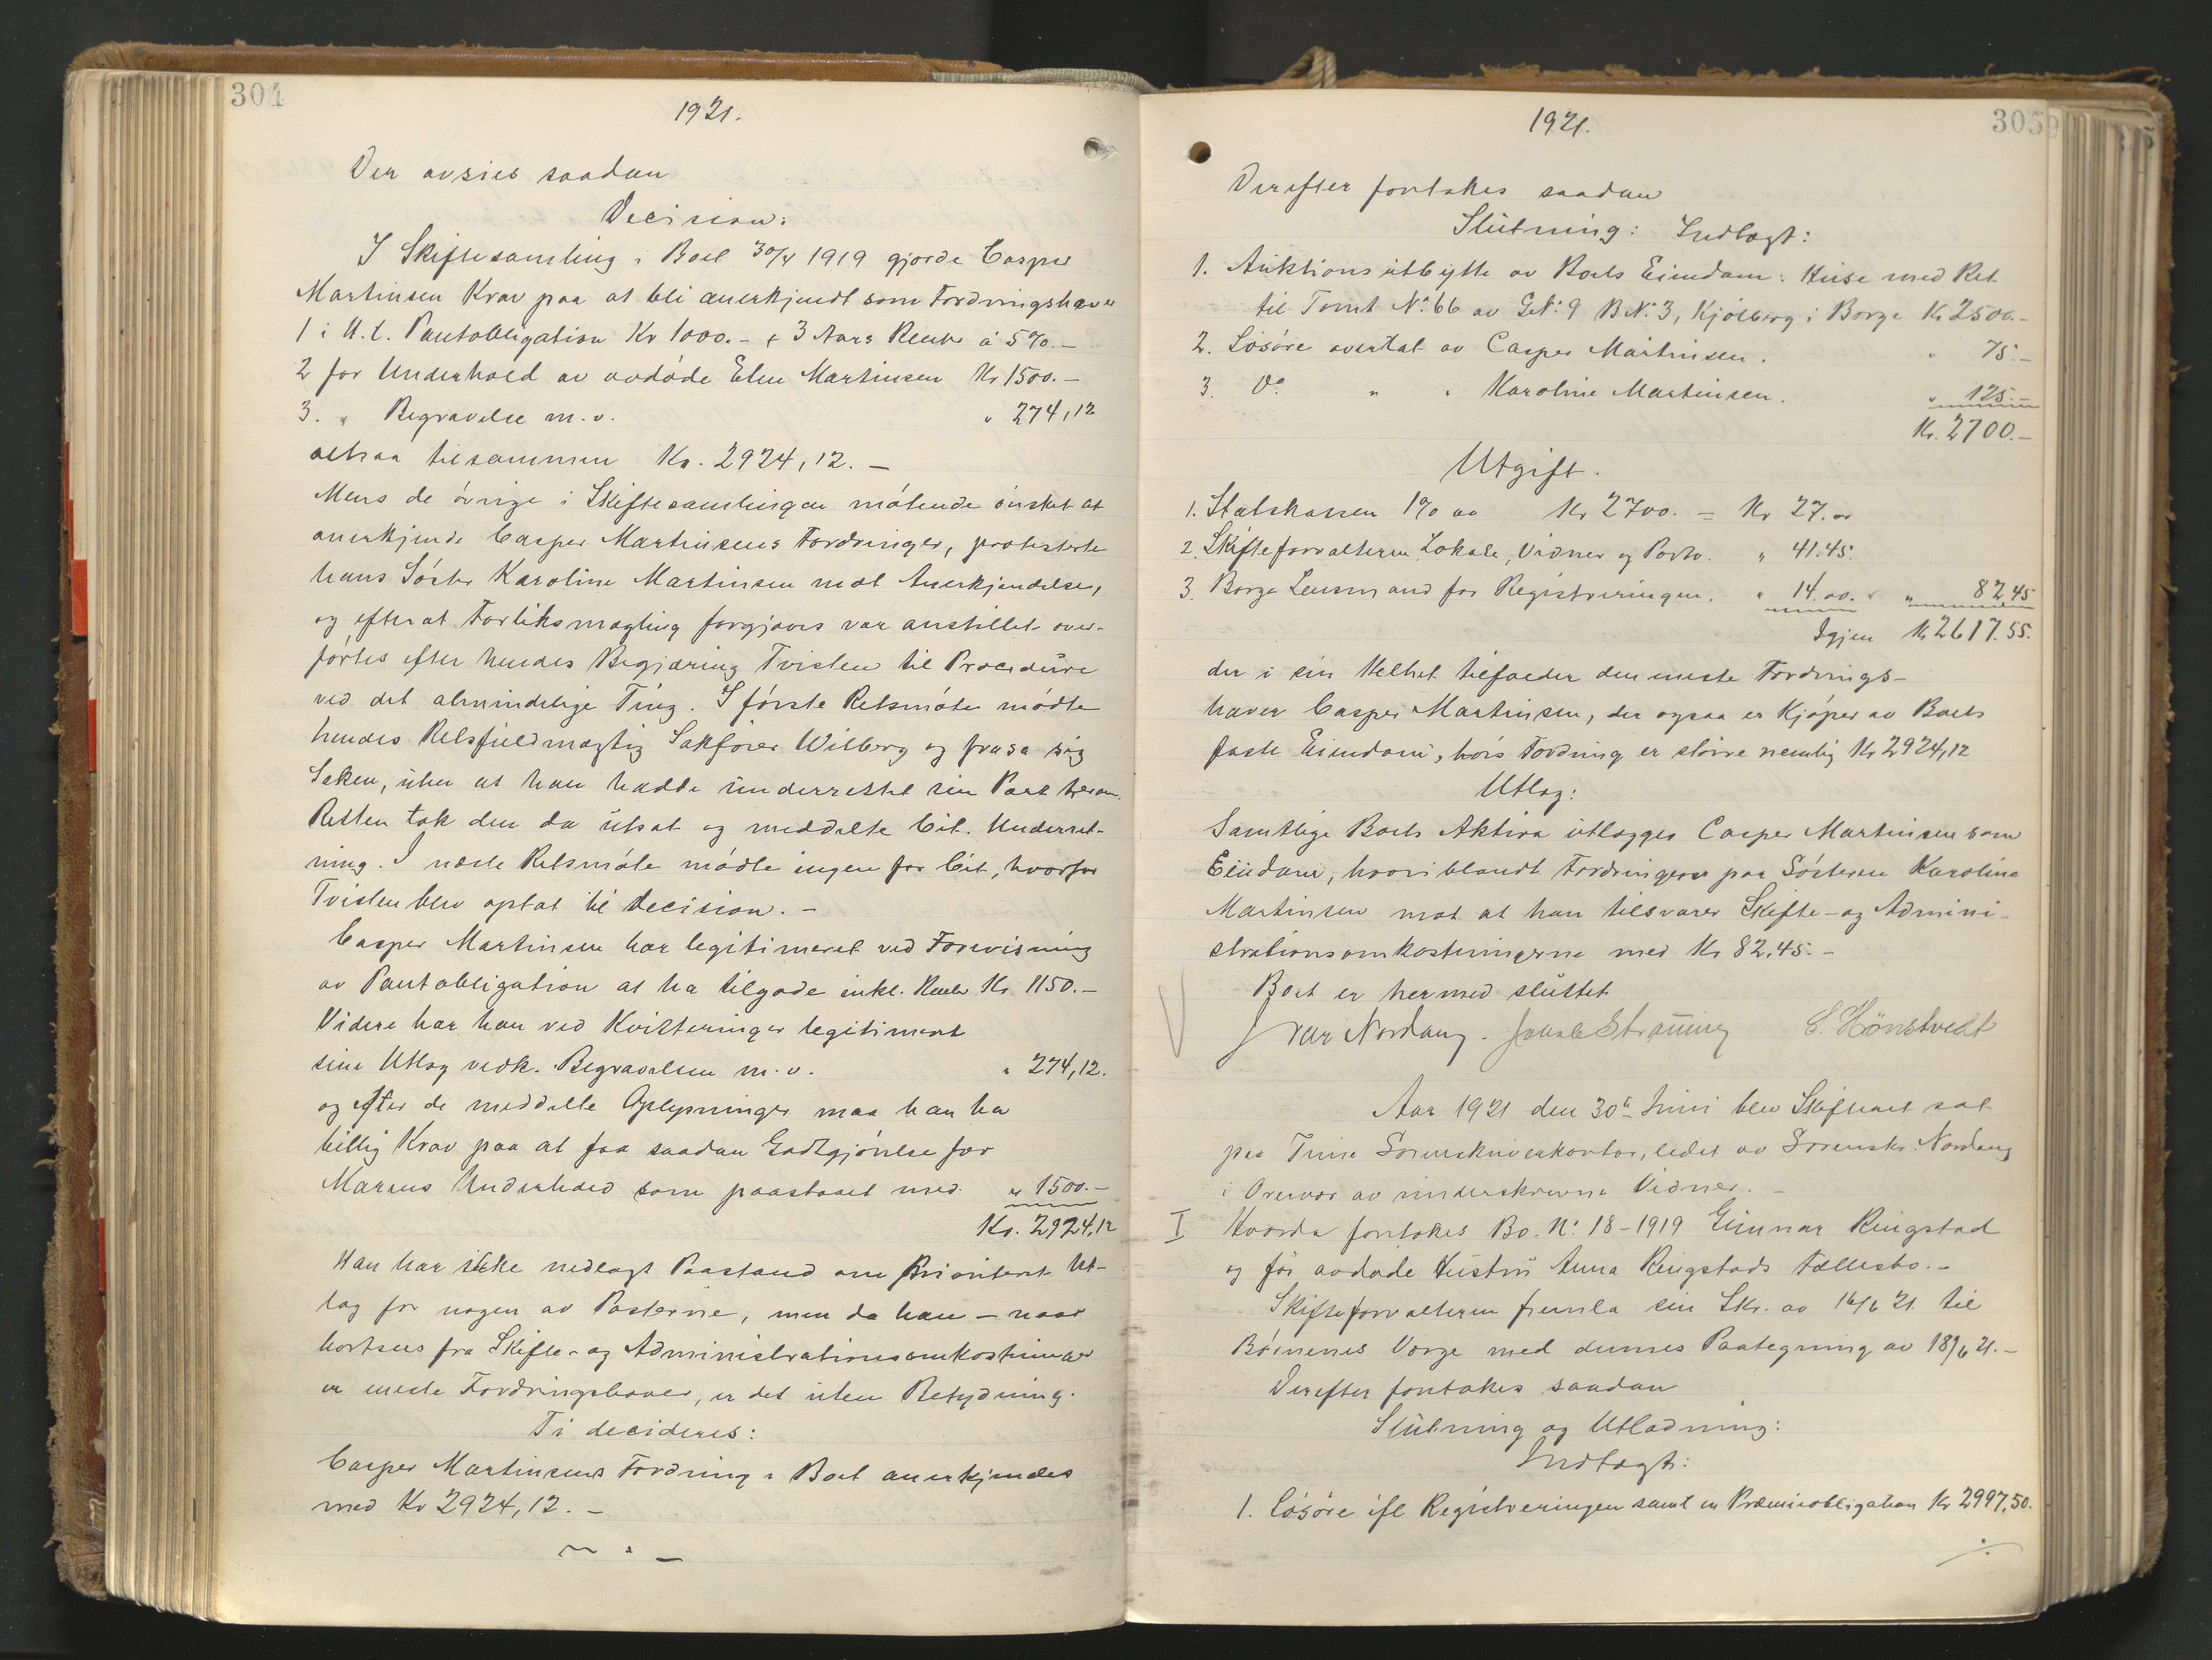 304
1921.
Der avsies saadan
Decision:
I Skiftesamling i Boet 30/4 1919 gjorde Casper
Martinsen Krav paa at bli anerkjendt som Fordringshaver
1 i H.t. Pantobligation Kr 1000.- + 3 Aars Rente á 5%.-
2 for Underhold av avdøde Elen Martinsen Kr 1500.-
3. " Begravelse m.v. " 274,12
altsaa tilsammen Kr. 2924,12.-
Mens de øvrige i Skiftesamlingen møtende ønsket at
anerkjende Casper Martinsens Fordringer, protesterte
hans Søster Karoline Martinsen mot Anerkjendelse,
og efter at Forliksmægling forgjæves var anstillet over-
førtes efter hendes Begjæring Tvisten til Procedure
ved det almindelige Ting. I første Retsmøte mødte
hendes Retsfuldmægtig Sakfører Wilberg og frasa sig
Saken, uten at han hadde underrettet sin Part herom.
Retten tok den da utsat og meddelte Cit. Underret-
ning. I næste Retsmøte mødte ingen for Cit, hvorfor
Tvisten blev optat til Decision.-
Casper Martinsen har legitimeret ved Forevisning
av Pantobligation at ha tilgode inkl. Rente Kr 1150.-
Videre har han ved Kvitteringer legitimert
sine Utlæg vedk. Begravelsen m.v. " 274,12.
og efter de meddelte Oplysninger maa han ha
billig Krav paa at faa saadan Godtgjørelse for
Morens Underhold som paastaaet med " 1500.-
Kr. 2924,12
Han har ikke nedlagt Paastand om Prioritert Ut-
læg for nogen av Posterne, men da han - naar
bortsees fra Skifte- og Administrationsomkostninger
er eneste Fordringshaver, er det uten Betydning.
Ti decideres:
Casper Martinsens Fordring i Boet anerkjendes
med Kr 2924,12.-
305
1921.
Derefter foretokes saadan
Slutning: Indtægt:
1. Auktionsutbytte av Boets Eiendom: Huse med Ret
til Tomt No. 66 av G.No. 9 B.No. 3, Kjølberg i Borge Kr 2500.-
2. Løsøre overtat av Casper Martinsen. " 75.-
3. Do. " " Karoline Martinsen. " 125.-
Kr. 2700.-
Utgift.
1. Statskassen 1% av Kr 2700. = Kr 27.00
2. Skifteforvalteren Lokale, Vidner og Porto. " 41.45.
3. Borge Lensmand for Registreringen. " 14.00. " 82.45
Igjen Kr 2617.55.
der i sin Helhet tilfalder den eneste Fordrings-
haver Casper Martinsen, der ogsaa er Kjøper av Boets
faste Eiendom, hvis Fordring er større nemlig Kr 2924,12
Utlæg:
Samtlige Boets Aktiva utlægges Casper Martinsen som
Eiendom, hvoriblandt Fordringer paa Søsteren Karoline
Martinsen mot at han tilsvarer Skifte- og Admini-
strationsomkostningerne med Kr 82,45.-
Boet er hermed sluttet
Ivar Nordang. C. Hönstvedt
Aar 1921 den 30te Juni blev Skifteret sat
paa Tune Sorenskriverkontor, ledet av Sorenskr. Nordang
i Overvær av underskrevne Vidner.-
I Hvorda foretokes Bo No. 18-1919 Gunnar Ringstad
og før avdøde Hustru Anna Ringstads Fællesbo.-
Skifteforvalteren fremla sin Skr. av 16/6 21 til
Børnenes Verge med dennes Paategning av 18/6 21.-
Derefter foretokes saadan
Slutning og Utlodning:
Indtægt:
1. Løsøre ifl Registreringen samt en Præmieobligation Kr 2997,50.